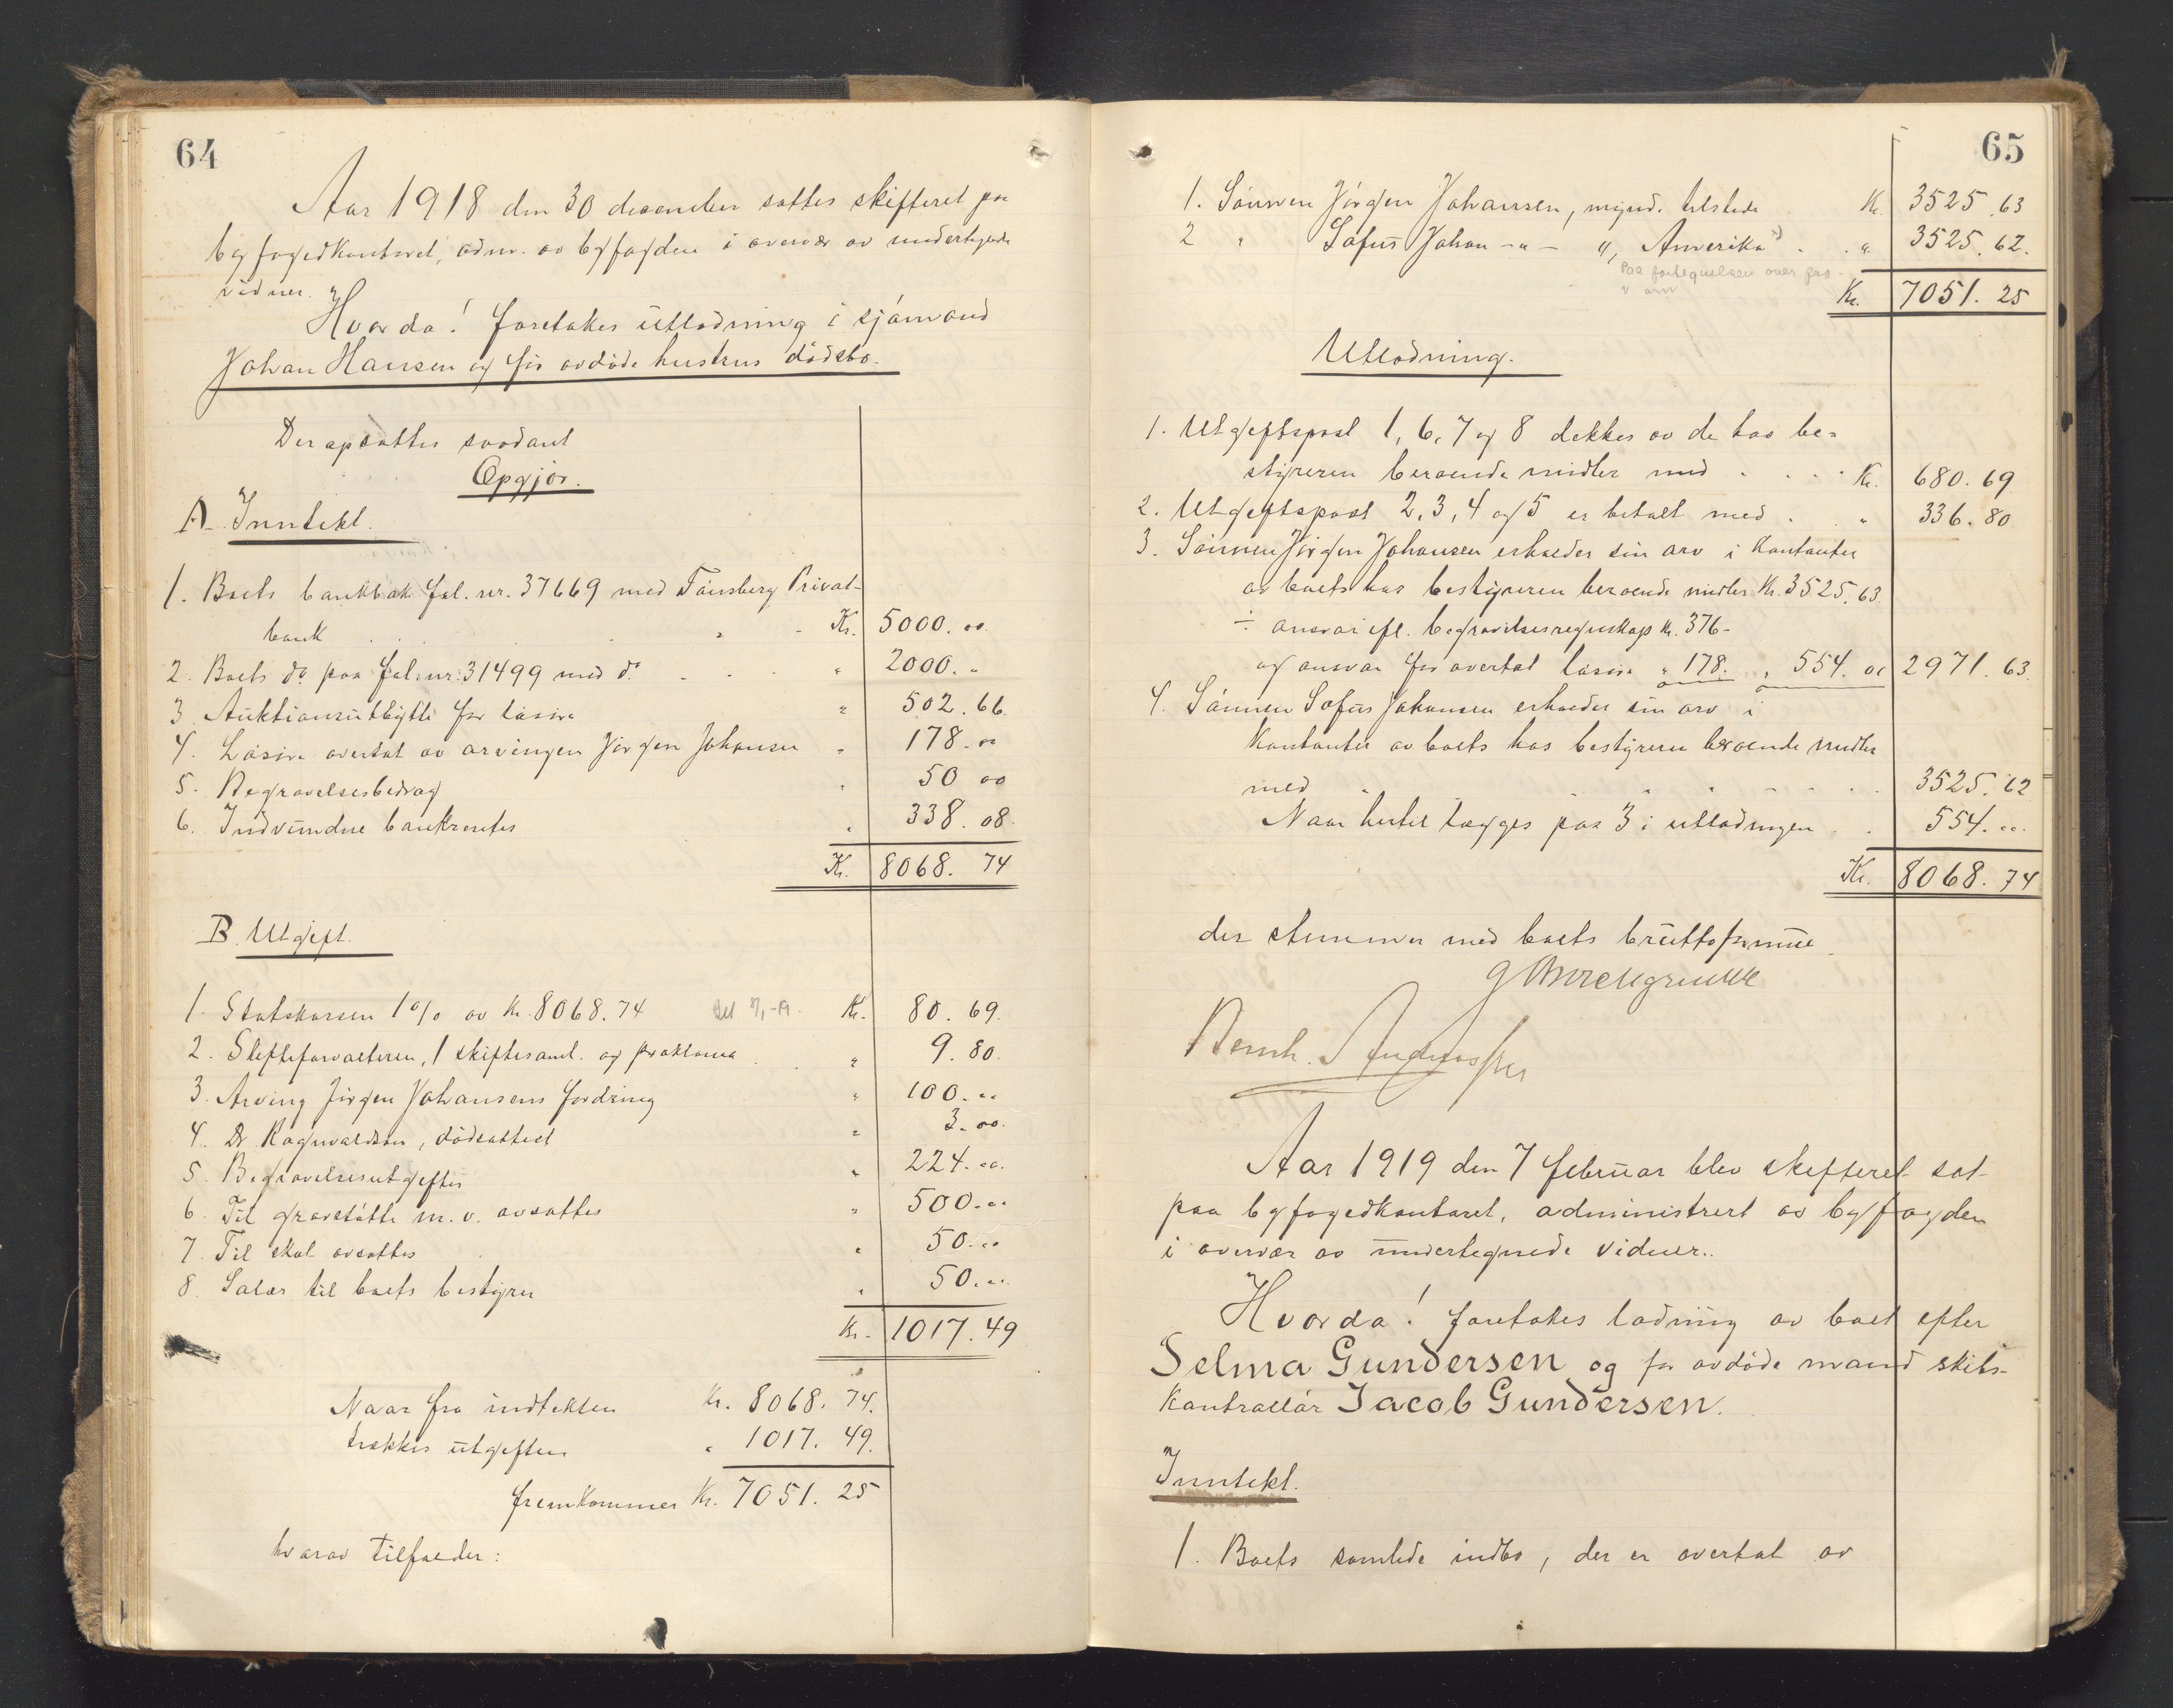 64
Aar 1918 den 30 december sattes skifteret paa
byfogedkontoret, adm. av byfogden i overvær av undertegnede
vidner.
Hvorda! foretokes utlodning i sjømand
Johan Hansen og før avdøde hustrus dødsbo.
Der opsattes saadant
Opgjør.
A. Inntekt.
1. Boets bankbok fol. nr. 37669 med Tønsberg Privat-
bank Kr. 5000.00
2. Boets do paa fol. nr. 31499 med do " 2000. "
3. Auktionsutbytte for løsøre " 502.66
4. Løsøre overtat av arvingen Jørgen Johansen " 178.00
5. Begravelsesbidrag " 50 00
6. Indvundne bankrenter " 338.08.
Kr. 8068.74
B. Utgift.
1. Statskassen 1 % av kr. 8068.74 Kr. 80.69.
2. Skifteforvalteren, 1 skiftesaml. og proklama " 9.80.
3. Arving Jørgen Johansens fordring " 100.00
4. Dr Ragnvaldsen, dødsattest " 3.00.
5. Begravelsesutgifter " 224.00.
6. Til gravstøtte m. v. avsattes " 500.00
7. Til skat avsattes " 50.00
8. Salær til boets bestyrer " 50.00
Kr. 1017.49
Naar fra indtekten Kr. 8068.74.
trækkes utgiften " 1017.49.
fremkommer Kr. 7051.25
hvorav tilfalder:
65
1. Sønnen Jørgen Johansen, mynd. tilstede Kr. 3525.63
2 " Sofus Johan -"- ", Amerika " 3525.62.
Paa fortegnelsen over
Kr. 7051.25
Utlodning.
1. Utgiftspost 1, 6, 7 og 8 dekkes av de hos be-
styreren beroende midler med Kr. 680.69
2. Utgiftspost 2, 3, 4 og 5 er betalt med " 336.80
3. Sønnen Jørgen Johansen erholder sin arv i kontanter
av boets hos bestyreren beroende midler Kr. 3525.63
÷ ansvar ifl. begravelsesregnskap kr. 376-
og ansvar for overtat løsøre " 178. " 554.00 2971.63.
4. Sønnen Sofus Johansen erholder sin arv i
kontanter av boets hos bestyreren beroende midler
med 3525.62
Naar hertil lægges paa 3 i utlodningen 554.00.
Kr. 8068.74
der stemmer med boets bruttosumme.
Aar 1919 den 7 februar blev skifteret sat
paa byfogedkontoret, administrert av byfogden
i overvær av undertegnede vidner.
Hvorda! foretokes lodning av boet efter
Selma Gundersen og før avdøde mand skibs-
kontrollør Jacob Gundersen.
Inntekt.
1. Boets samlede indbo, der er overtat av